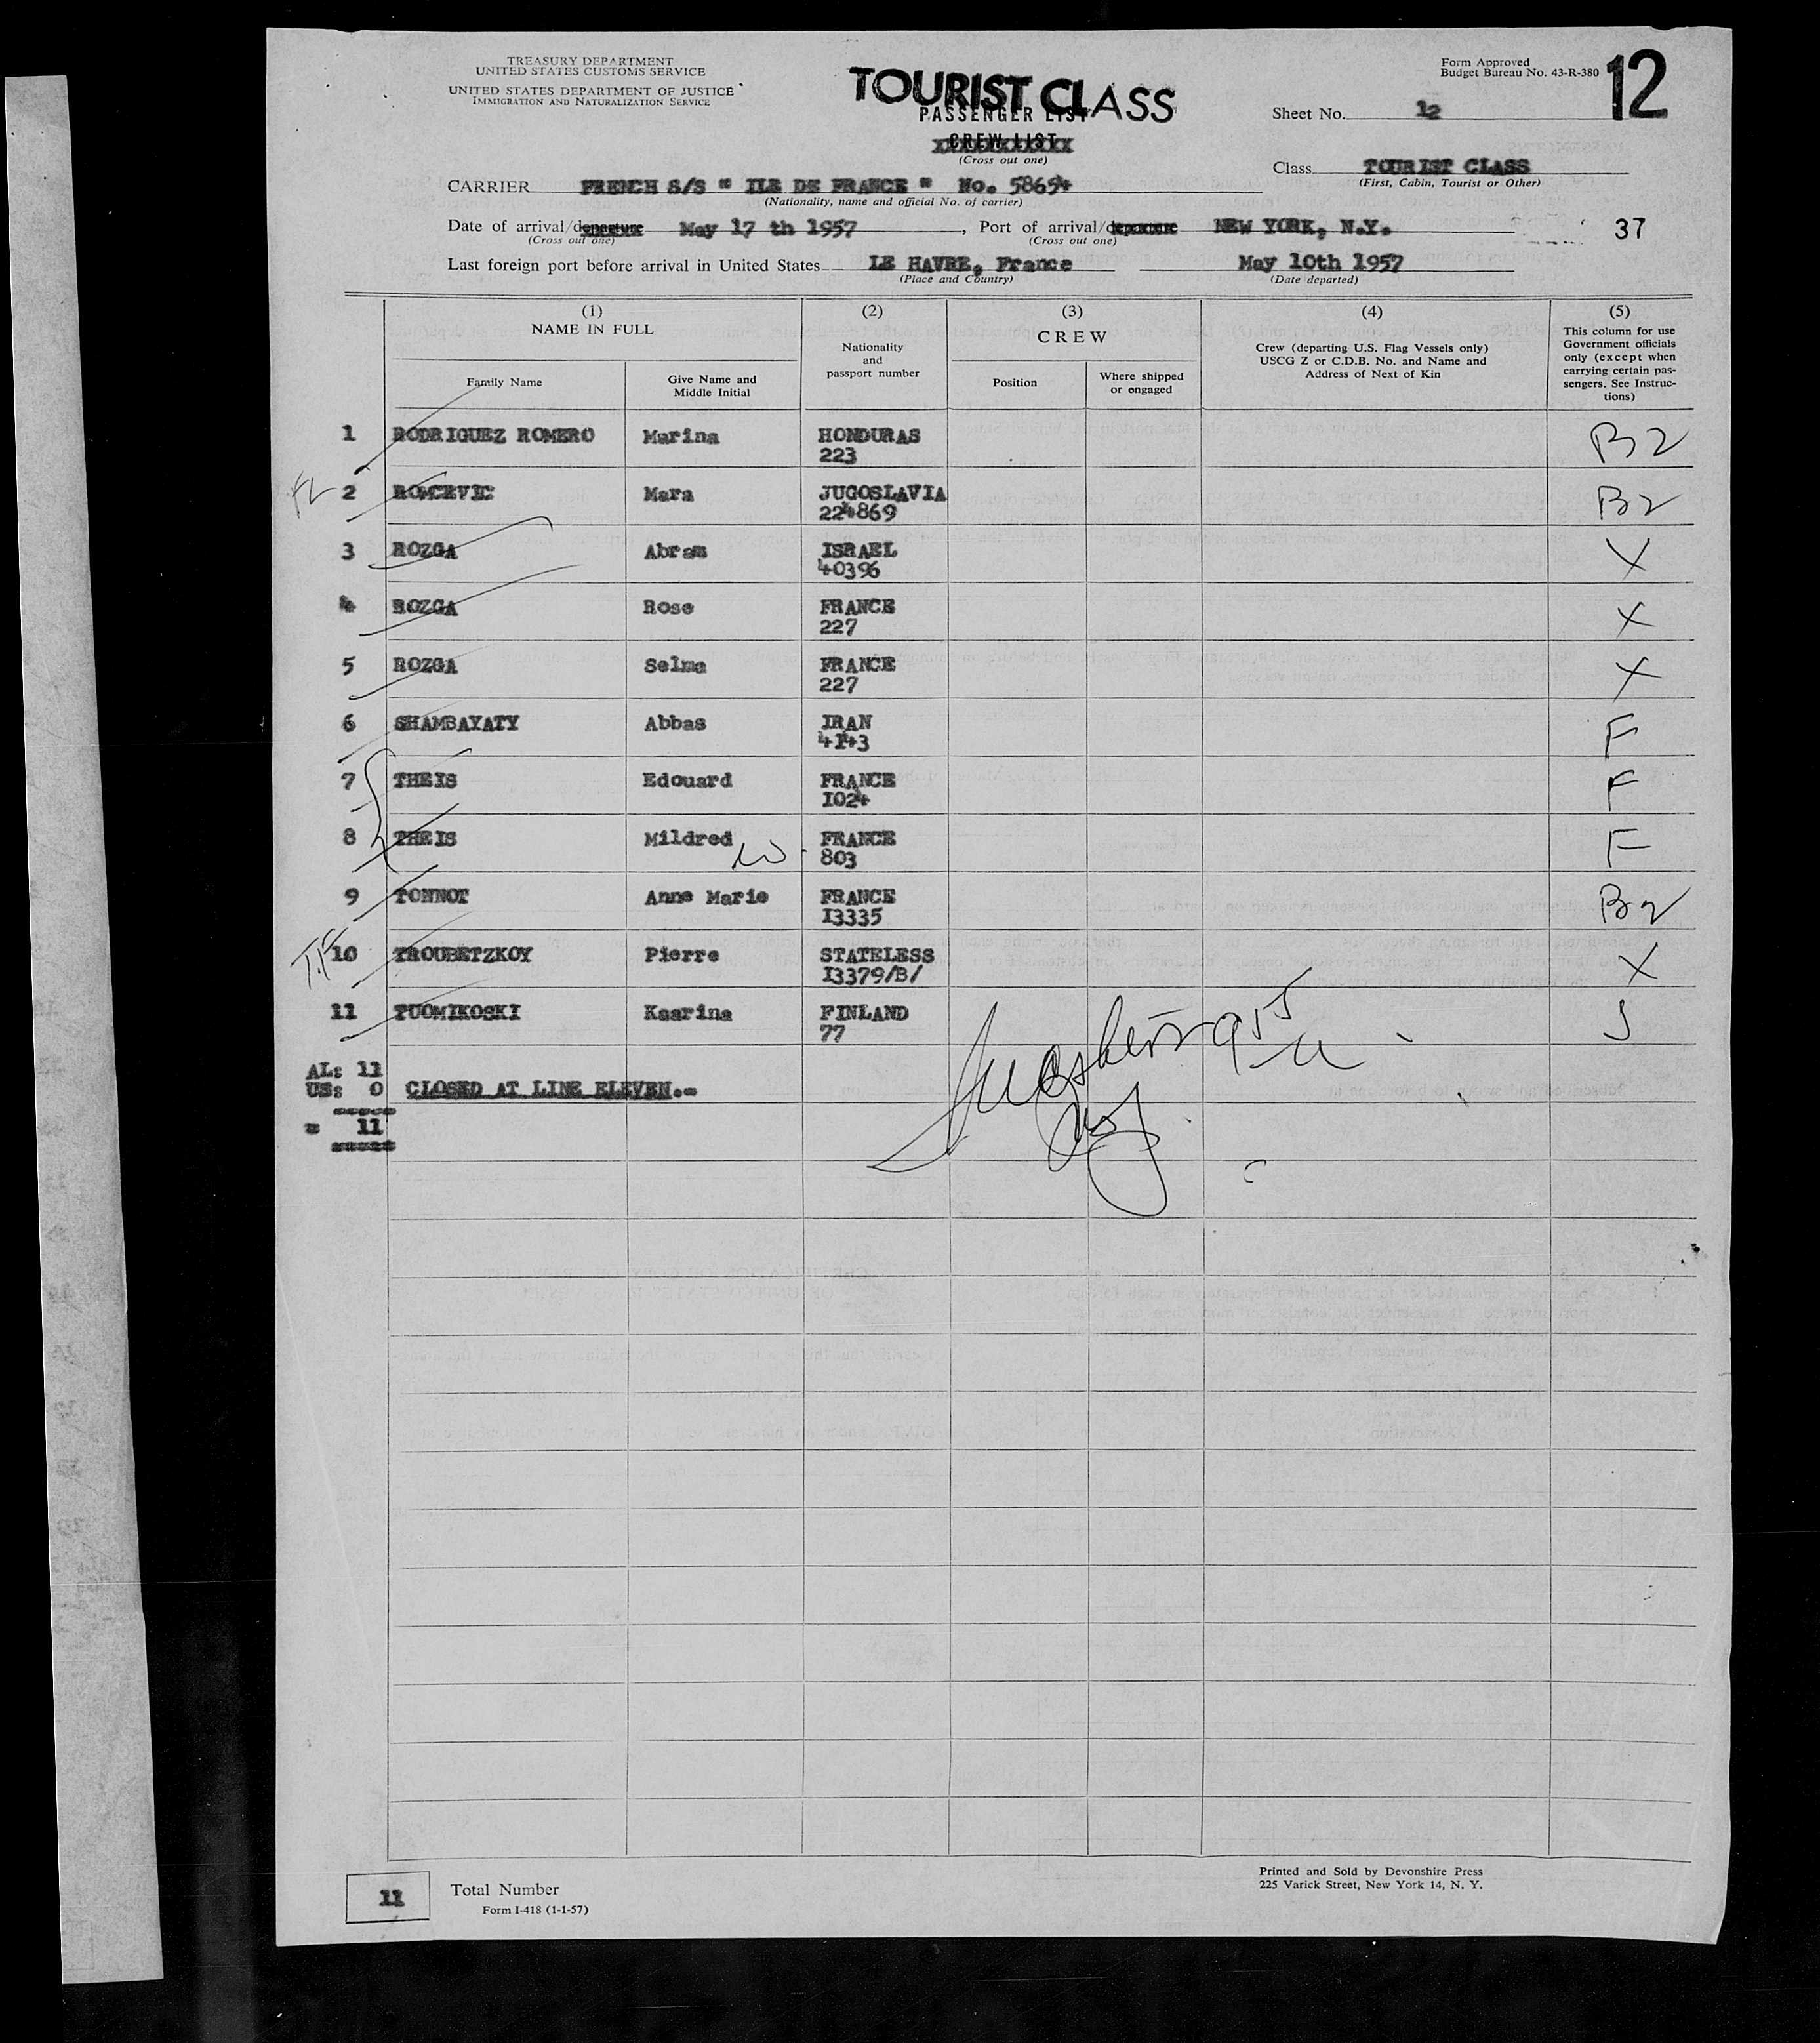 TREASURY DEPARTMENT
UNITED STATES CUSTOMS SERVICE
UNITED STATES DEPARTMENT OF JUSTICE
IMMIGRATION AND NATURALIZATION SERVICE
TOURIST CLASS
PASSENGER LIST
CREW LIST
(Cross out one)
Form Approved
Budget Bureau No. 43-R-380
12
Sheet No. 12
Class TOURIST CLASS
(First, Cabin, Tourist or Other)
CARRIER FRENCH S/S " ILE DE FRANCE " No. 58654
(Nationality, name and official No. of carrier)
Date of arrival/departure May 17 th 1957, Port of arrival/departure NEW YORK, N.Y.
(Cross out one) (Cross out one)
37
Last foreign port before arrival in United States LE HAVRE, France May 10th 1957
(Place and Country) (Date departed)
(1) (2) (3) (4) (5)
NAME IN FULL
Family Name
Give Name and Middle Initial
Nationality and passport number
CREW
Position
Where shipped or engaged
Crew (departing U.S. Flag Vessels only)
USCG Z or C.D.B. No. and Name and
Address of Next of Kin
This column for use
Government officials
only (except when
carrying certain pas-
sengers. See Instruc-
tions)
1 RODRIGUEZ ROMERO Marina HONDURAS B2
223
2 ROMCEVIC Mara JUGOSLAVIA B2
224869
3 ROZGA Abram ISRAEL X
40396
4 ROZGA Rose FRANCE X
227
5 ROZGA Selma FRANCE X
227
6 SHAMBAYATY Abbas IRAN F
4143
7 THEIS Edouard FRANCE F
1024
8 THEIS Mildred FRANCE F
803
9 TONNOT Anne Marie FRANCE B2
I3335
10 TROUBETZKOY Pierre STATELESS X
I3379/B/
11 TUOMIKOSKI Kaarina FINLAND J
77
AL: 11
US: 0 CLOSED AT LINE ELEVEN.-
= 11
11 Total Number
Form I-418 (1-1-57)
Printed and Sold by Devonshire Press
225 Varick Street, New York 14, N. Y.